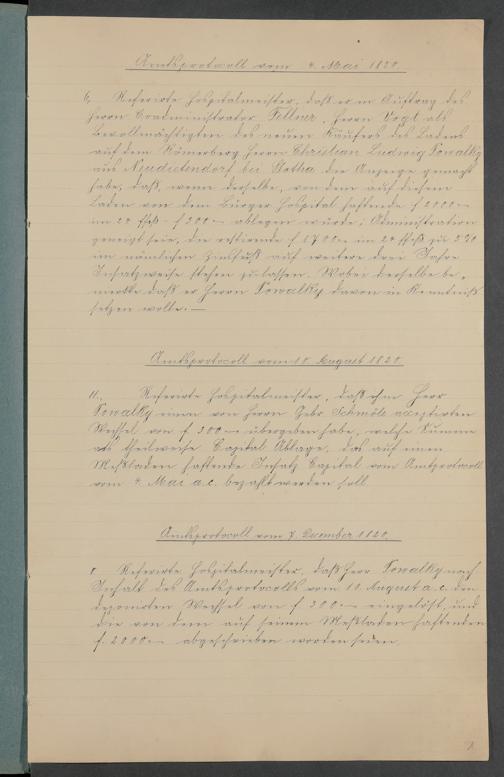 Amtsprotocoll vom 4. Mai 1820.
6, Referirte Hospitalmeister, daß er im Auftrag des
Herrn Coadministrator Fellner, Herrn Vogt als
Bevollmächtigten des neuen Käufers des Ladens
auf dem Römerberg Herrn Christian Ludwig Towalky
aus Neudietendorf bei Gotha die Anzeige gemacht
habe, daß, wenn derselbe, von dem auf diesem
Laden von dem Bürger Hospital haftende f 2000 –
im 24 f 300 – ablegen würde, Administration
geneigt seie, die restirende f 1700 – im 24 zu 5 %
im nämlichen Zinsfuß auf weitere drei Jahre
Insatzweise stehen zu lassen. Wobei derselbe be-
merkte daß er Herrn Towalky davon in Kenntniß
setzen wolle. —
Amtsprotocoll vom 10. August 1820.
11., Referirte Hospitalmeister, daß ihm Herr
Towalky einen von Herrn Gebr. Schmölz acceptirten
Wechsel von f 300 — übergeben habe, welche Summe
als theilweise Capital Ablage, das auf einen
Meßladen haftende Insatz Capital vom Amtsprotocoll
vom 4. Mai a.c. bezahlt werden soll.
Amtsprotocoll vom 7. December 1820.
8. Referirte Hospitalmeister, daß Herr Towalky nach
Inhalt des Amtsprotocolls vom 10 August a.c. den
deponirten Wechsel von f 300 — eingelöst, und
die von dem auf seinem Meßladen haftenden
f. 2000 — abgeschrieben worden seien.